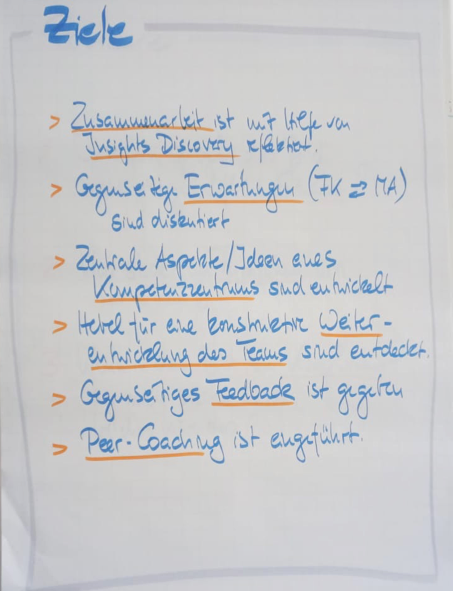 Ziele
> Zusammenarbeit ist mit Hilfe von
Insights Discovery reflektiert.
> Gegenseitige Erwartungen (FK ⇄ MA)
sind diskutiert
> Zentrale Aspekte/Ideen eines
Kompetenzzentrums sind entwickelt
> Hebel für eine konstruktive Weiter-
entwicklung des Teams sind entdeckt.
> Gegenseitiges Feedback ist gegeben
> Peer-Coaching ist eingeführt.